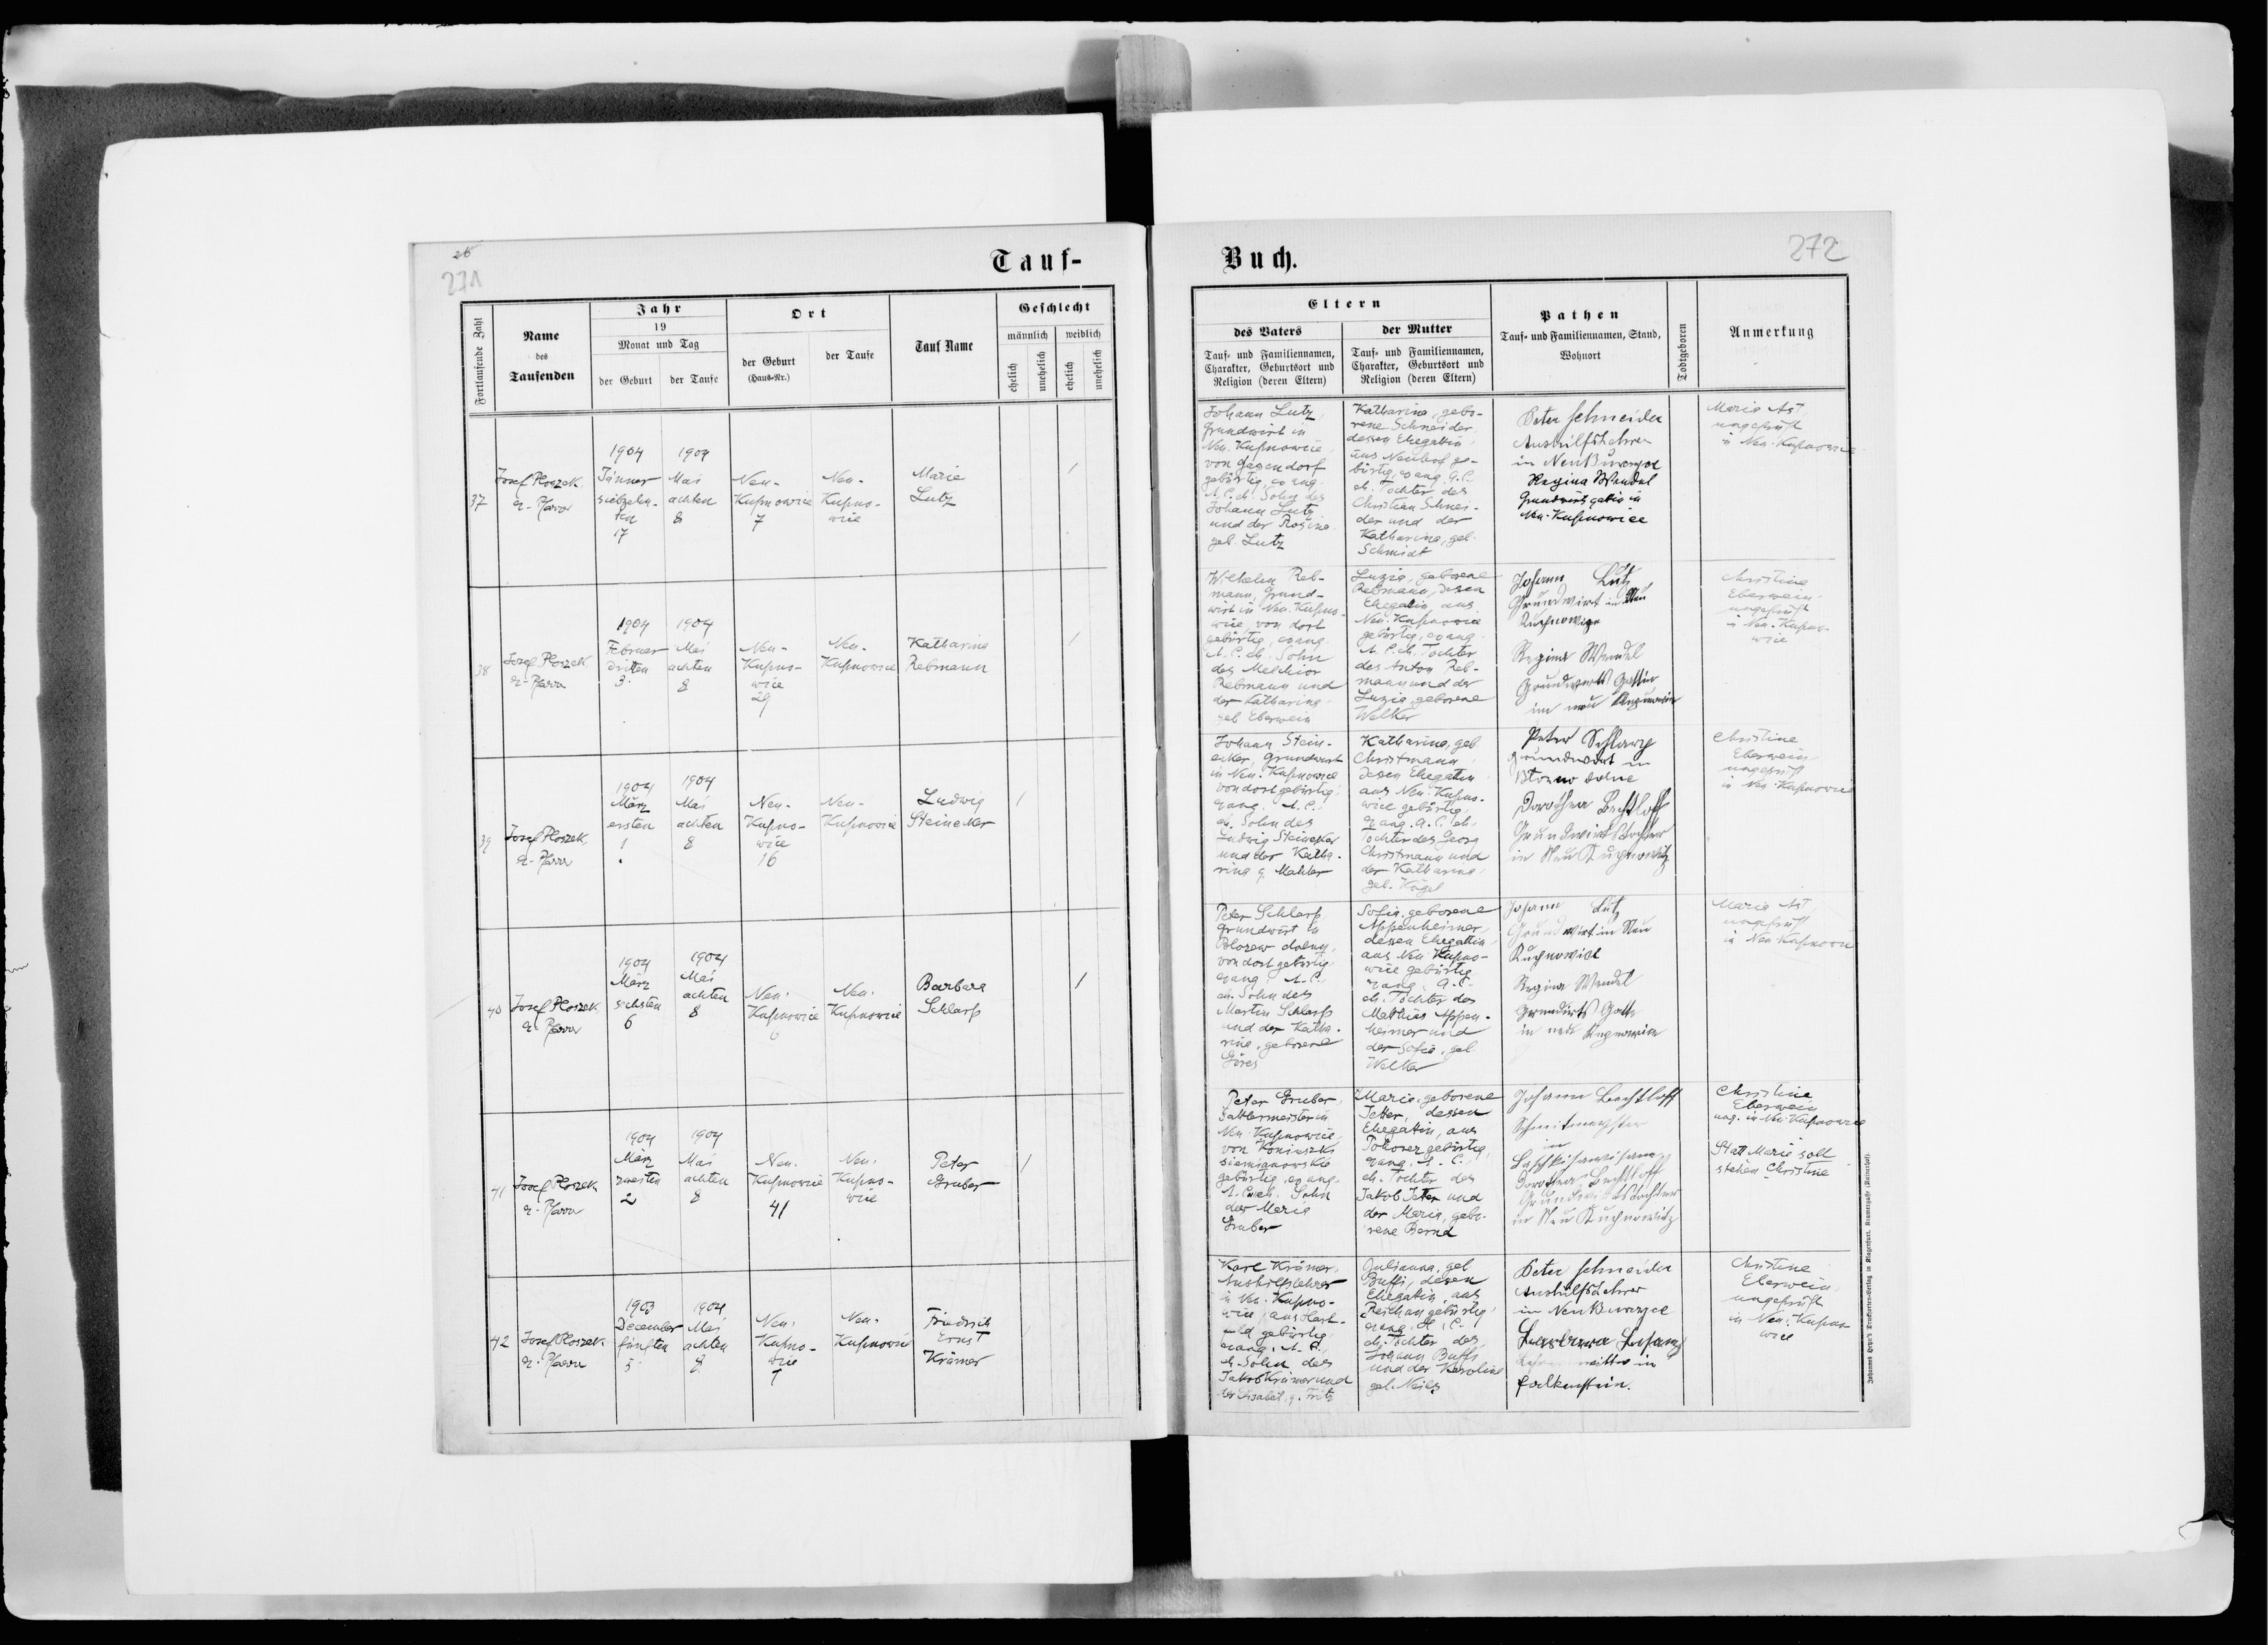 26
271
Tauf-
Fortlaufende Zahl
Name
des
Taufenden
Jahr
19
Monat und Tag
der Geburt
der Taufe
Ort
der Geburt
(Haus-Nr.)
der Taufe
Tauf Name
Geschlecht
männlich
weiblich
ehelich
unehelich
ehelich
unehelich
37
Josef Ploszek
ev. Pfarrer
1904
Jänner
siebzehn-
ten
17
1904
Mai
achten
8
Neu-
Kupnowice
7
Neu-
Kupno-
wice
Marie
Lutz
/
38
Josef Ploszek
ev. Pfarrer
1904
Februar
dritten
3.
1904
Mai
achten
8
Neu-
Kupno-
wice
29
Neu-
Kupnowice
Katharina
Rebmann
/
39
Josef Ploszek
ev. Pfarrer
1904
März
ersten
1
1904
Mai
achten
8
Neu-
Kupno-
wice
16
Neu-
Kupnowice
Ludwig
Steinecker
/
40
Josef Ploszek
ev. Pfarrer
1904
März
sechsten
6
1904
Mai
achten
8
Neu-
Kupnowice
6
Neu-
Kupnowice
Barbara
Schlarp
/
41
Josef Ploszek
ev. Pfarrer
1904
März
zweiten
2
1904
Mai
achten
8
Neu-
Kupnowice
41
Neu-
Kupno-
wice
Peter
Gruber
/
42
Josef Ploszek
ev. Pfarrer
1903
December
fünften
5.
1904
Mai
achten
8
Neu-
Kupno-
wice
7
Neu-
Kupnowice
Friedrich
Ernst
Krämer
/
Buch.
272
Eltern
des Vaters
Tauf- und Familiennamen,
Charakter, Geburtsort und
Religion (deren Eltern)
der Mutter
Tauf- und Familiennamen,
Charakter, Geburtsort und
Religion (deren Eltern)
Pathen
Tauf- und Familiennamen, Stand,
Wohnort
Todtgeboren
Anmerkung
Johann Lutz,
Grundwirt in
Neu-Kupnowice,
von Gassendorf
gebürtig, evang.
A.C. eh. Sohn des
Johann Lutz
und der Rosina
geb. Lutz
Katharina, gebo-
rene Schneider
dessen Ehegattin,
aus Neuhof ge-
bürtig, evang. A.C.
eh. Tochter des
Christian Schnei-
der und der
Katharina, geb.
Schmidt
Peter Schneider
Aushilfslehrer
in Neu
Regina Wendel
Grundwirtsgattin in
Neu-Kupnowice
Marie Ast
ungeprüft
in Neu-Kupnowice
Wilhelm Reb-
mann, Grund-
wirt in Neu-Kupno-
wice, von dort
gebürtig, evang.
A.C. eh. Sohn
des Melchior
Rebmann und
der Katharina
geb. Eberwein
Luzia, geborene
Rebmann, dessen
Ehegattin, aus
Neu-Kupnowice
gebürtig, evang.
A.C. eh. Tochter
des Anton Reb-
mann und der
Luzia, geborene
Welker
Johann Lutz
Grundwirt in Neu
Regina Wendel
Grundwirts Gattin
im neu
Christine
Eberwein
ungeprüft
in Neu-Kupno-
wice
Johann Stein-
ecker, Grundwirt
in Neu-Kupnowice
von dort gebürtig,
evang. A.C.
eh. Sohn des
Ludwig Steinecker
und der Katha-
rina g. Mahler
Katharina, geb.
Christmann,
dessen Ehegattin
aus Neu-Kupno-
wice gebürtig,
evang. A.C. eh.
Tochter des Georg
Christmann und
der Katharina,
geb. Kägel
Peter Schlarp
Grundwirt in
Dorothea Bechtloff
Grundwirtstochter
in Neu Kupnowitz
Christine
Eberwein
ungeprüft
in Neu-Kupnowice
Peter Schlarp
Grundwirt in
von dort gebürtig
evang. A.C.
eh. Sohn des
Martin Schlarp
und der Katha-
rina, geborene
Göres
Sofia, geborene
Appenheimer,
dessen Ehegattin,
aus Neu Kupno-
wice gebürtig
evang. A.C.
eh. Tochter des
Mathias Appen-
heimer und
der Sofia, geb.
Welker
Johann Lutz
Grundwirt in Neu
Regina Wendel
Grundwirts Gattin
in neu
Marie Ast
ungeprüft
in Neu-Kupnowice
Peter Gruber,
Sattlermeister in
Neu-Kupnowice,
von Koniuszki
siemianowskie
gebürtig, evang.
A.C. eh. Sohn
der Maria
Gruber
Maria, geborene
Jetter, dessen
Ehegattin, aus
gebürtig,
evang. A.C.
eh. Tochter des
Jakob Jeter und
der Maria, gebo-
rene Bernd
Johann Bechtloff
in
Dorothea Bechtloff
Grundwirtstochter
in Neu Kuchnowitz
Christine
Eberwein
ung. in Neu-Kupnowice
Statt Marie soll
stehen Christine
Karl Krämer,
Aushilfslehrer
in Neu-Kupno-
wice, aus Hart-
feld gebürtig,
evang. A.C.,
eh. Sohn des
Jakob Krämer und
der Elisabet, g. Fritz
Julianna, geb.
Buffi, dessen
Ehegattin, aus
Reichau gebürtig,
evang. H.C.
eh. Tochter des
Johann Buffi
und der Karoline
geb.
Peter Schneider
Aushilfslehrer
in Neu
Barbara
in
Falkenstein.
Christine
Eberwein,
ungeprüft
in Neu-Kupno-
wice